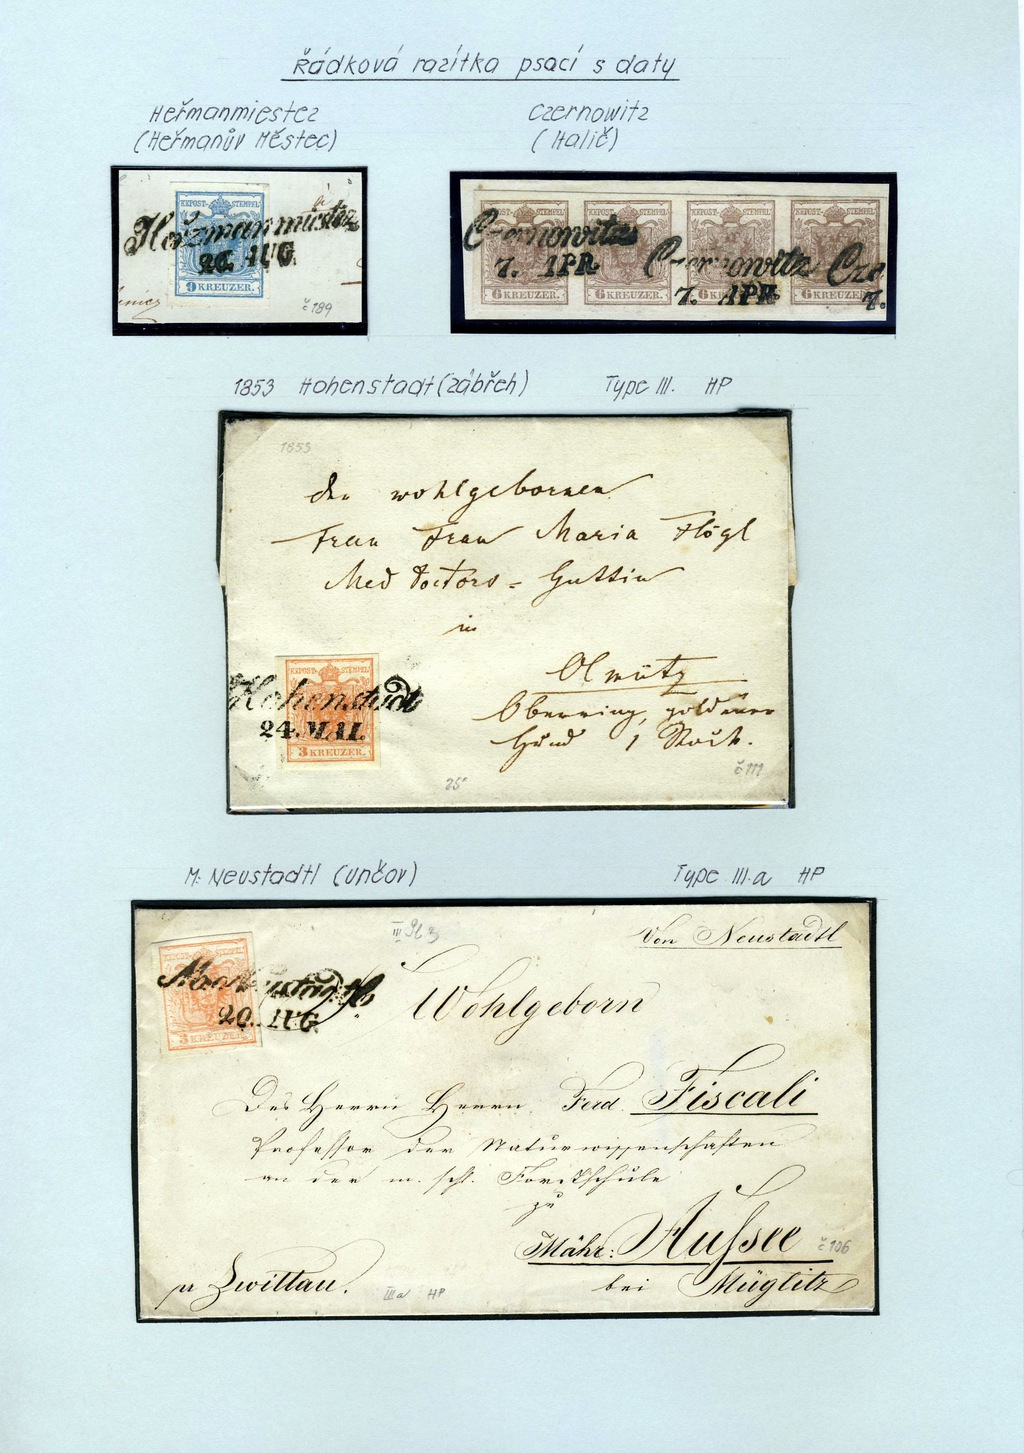 Řádková razítka psací s daty
Heřmanmiestez
(Heřmanův Městec)
Czernowitz
(Halič)
KKPOST-STEMPEL
Heržmanmiestez
26. AUG.
9 KREUZER.
č 189
KKPOST-STEMPEL KKPOST-STEMPEL KKPOST-STEMPEL KKPOST-STEMPEL
Czernowitz
7. APR.
Czernowitz Cze
7. APR. 7.
6 KREUZER. 6 KREUZER. 6 KREUZER. 6 KREUZER.
1853 Hohenstadt (Zábřeh) Type III. HP
1853
der wohlgebornen
Frau Frau Maria Flögl
Med Doctors = Gattin
in
Olmütz
Oberring, goldener
Hund 1 Stock.
KKPOST-STEMPEL
Hohenstadt
24. MAI.
3 KREUZER.
25
č 111
M: Neustadtl (Unčov) Type III.a HP
III
Von Neustadtl
KKPOST-STEMPEL
20. AUG.
3 KREUZER.
Wohlgeborn
Des Herrn Herrn Ferd. Fiscali
Professor der Naturwissenschaften
an der m. schl. Forstschule
zu
Mähr: Aussee
č 106
bei Müglitz
pr Zwittau.
IIIa HP